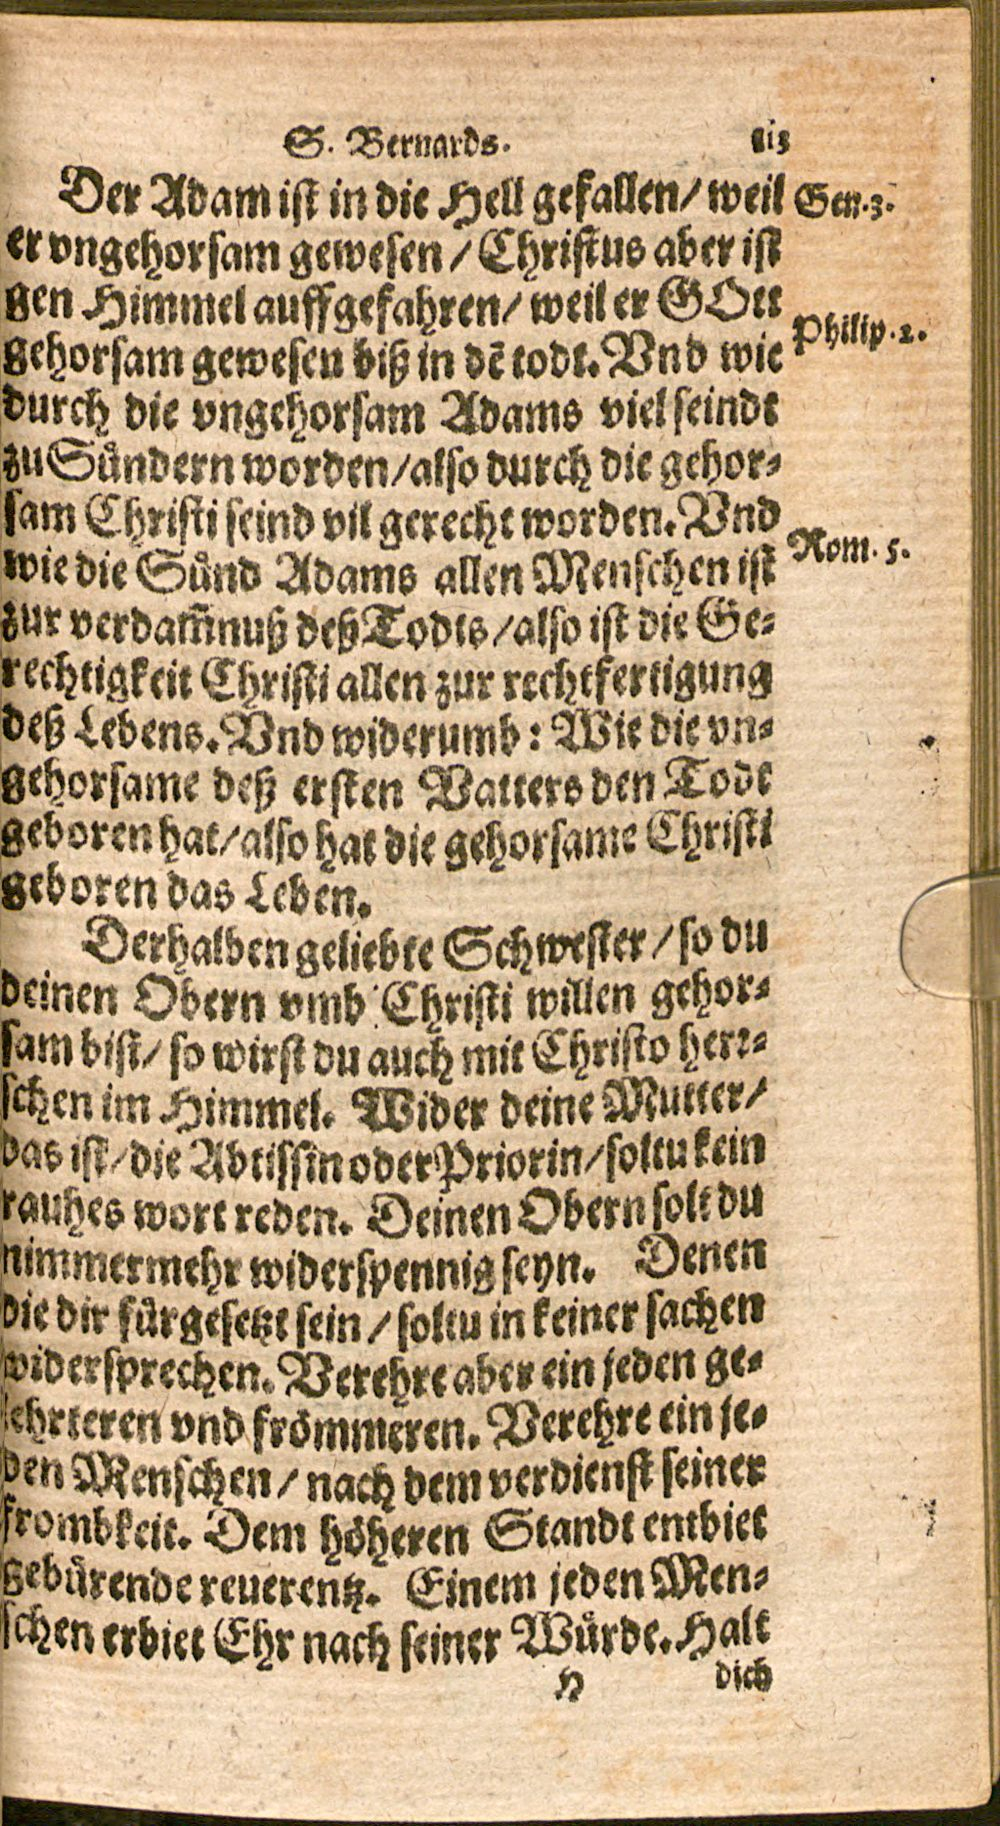 S. Bernards. 113
Der Adam ist in die Hell gefallen/ weil Gen. 3.
er vngehorsam gewesen / Christus aber ist
gen Himmel auffgefahren/ weil er GOtt
gehorsam gewesen biß in dē todt. Vnd wie Philip. 2.
durch die vngehorsam Adams viel seindt
zu Sündern worden/ also durch die gehor-
sam Christi seind vil gerecht worden. Vnd
wie die Sünd Adams allen Menschen ist Rom. 5.
zur verdam̃nuß deß Todts/ also ist die Ge-
rechtigkeit Christi allen zur rechtfertigung
deß Lebens. Vnd widerumb: Wie die vn-
gehorsame deß ersten Vatters den Todt
geboren hat/ also hat die gehorsame Christi
geboren das Leben.
Derhalben geliebte Schwester / so du
deinen Obern vmb Christi willen gehor-
sam bist/ so wirst du auch mit Christo herr-
schen im Himmel. Wider deine Mutter/
das ist/ die Abtissin oder Priorin/ soltu kein
rauhes wort reden. Deinen Obern solt du
nimmermehr widerspennig seyn. Denen
die dir fürgesetzt sein / soltu in keiner sachen
widersprechen. Verehre aber ein jeden ge-
lehrteren vnd frömmeren. Verehre ein je-
den Menschen / nach dem verdienst seiner
frombkeit. Dem höheren Standt entbiet
gebürende reuerentz. Einem jeden Men-
schen erbiet Ehr nach seiner Würde. Halt
H dich